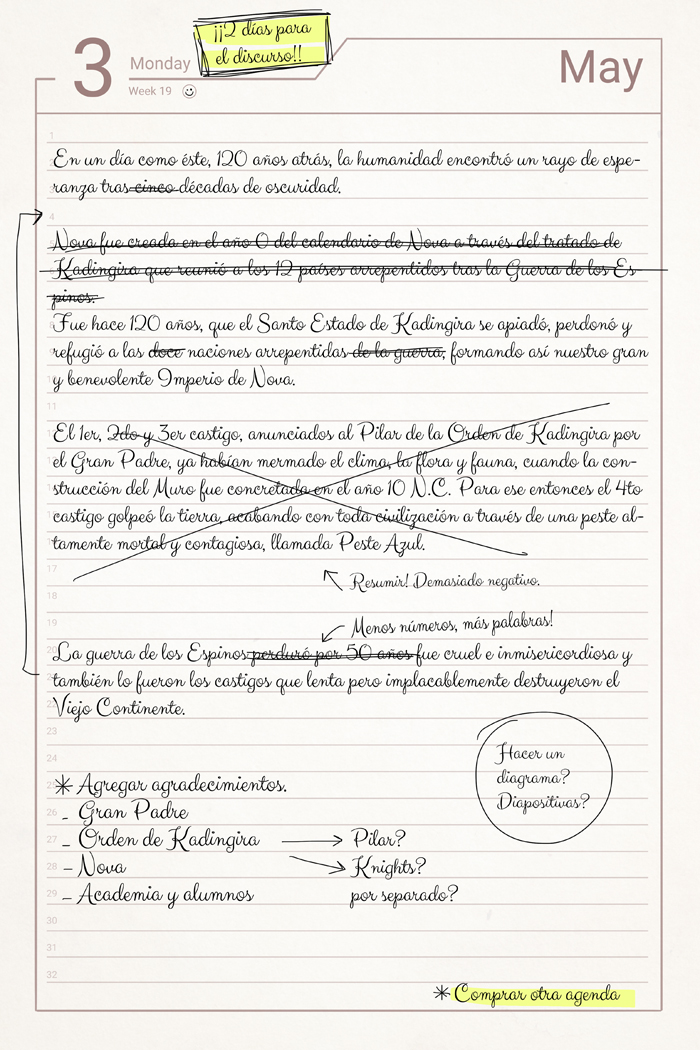 ¡¡2 días para
el discurso!!
3
Monday
Week 19
May
1
En un día como éste, 120 años atrás, la humanidad encontró un rayo de espe-
ranza tras cinco décadas de oscuridad.
4
Nova fue creada en el año 0 del calendario de Nova a través del tratado de
Kadingira que reunió a los 12 países arrepentidos tras la Guerra de los Es-
pinos.
Fue hace 120 años, que el Santo Estado de Kadingira se apiadó, perdonó y
refugió a las doce naciones arrepentidas de la guerra, formando así nuestro gran
y benevolente Imperio de Nova.
11
El 1er, 2do y 3er castigo, anunciados al Pilar de la Orden de Kadingira por
el Gran Padre, ya habían mermado el clima, la flora y fauna, cuando la con-
strucción del Muro fue concretada en el año 10 N.C. Para ese entonces el 4to
castigo golpeó la tierra, acabando con toda civilización a través de una peste al-
tamente mortal y contagiosa, llamada Peste Azul.
17
Resumir! Demasiado negativo.
18
19
Menos números, más palabras!
La guerra de los Espinos perduró por 50 años fue cruel e inmisericordiosa y
también lo fueron los castigos que lenta pero implacablemente destruyeron el
Viejo Continente.
23
24
Hacer un
diagrama?
Diapositivas?
25
* Agregar agradecimientos.
26
- Gran Padre
27
- Orden de Kadingira → Pilar?
28
- Nova → Knights?
29
- Academia y alumnos por separado?
30
31
32
* Comprar otra agenda